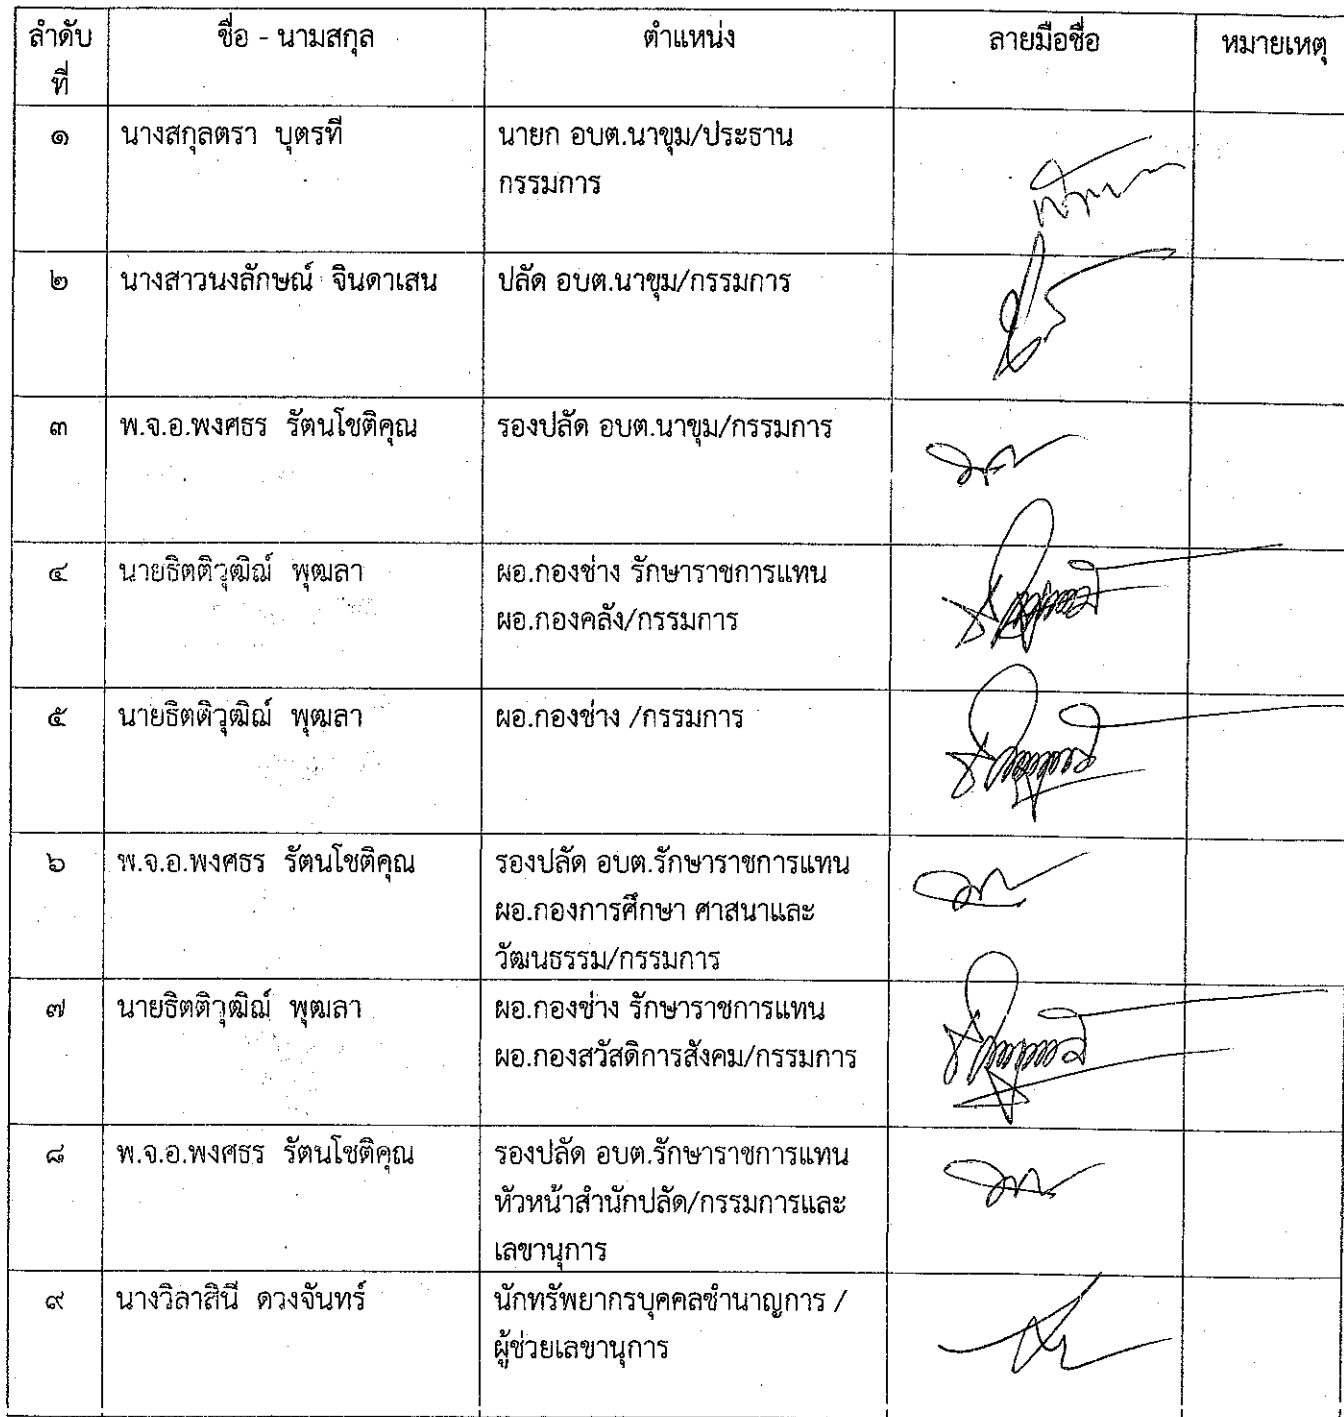 ลำดับ ชื่อ - นามสกุล ตำแหน่ง ลายมือชื่อ หมายเหตุ
ที่
๑ นางสกุลตรา บุตรที นายก อบต.นาขุม/ประธาน
กรรมการ
๒ นางสาวนงลักษณ์ จินดาเสน ปลัด อบต.นาขุม/กรรมการ
๓ พ.จ.อ.พงศธร รัตนโชติคุณ รองปลัด อบต.นาขุม/กรรมการ
๔ นายธิตติวุฒิณ์ พุฒลา ผอ.กองช่าง รักษาราชการแทน
ผอ.กองคลัง/กรรมการ
๕ นายธิตติวุฒิณ์ พุฒลา ผอ.กองช่าง /กรรมการ
๖ พ.จ.อ.พงศธร รัตนโชติคุณ รองปลัด อบต.รักษาราชการแทน
ผอ.กองการศึกษา ศาสนาและ
วัฒนธรรม/กรรมการ
๗ นายธิตติวุฒิณ์ พุฒลา ผอ.กองช่าง รักษาราชการแทน
ผอ.กองสวัสดิการสังคม/กรรมการ
๘ พ.จ.อ.พงศธร รัตนโชติคุณ รองปลัด อบต.รักษาราชการแทน
หัวหน้าสำนักปลัด/กรรมการและ
เลขานุการ
๙ นางวิลาสินี ดวงจันทร์ นักทรัพยากรบุคคลชำนาญการ /
ผู้ช่วยเลขานุการ